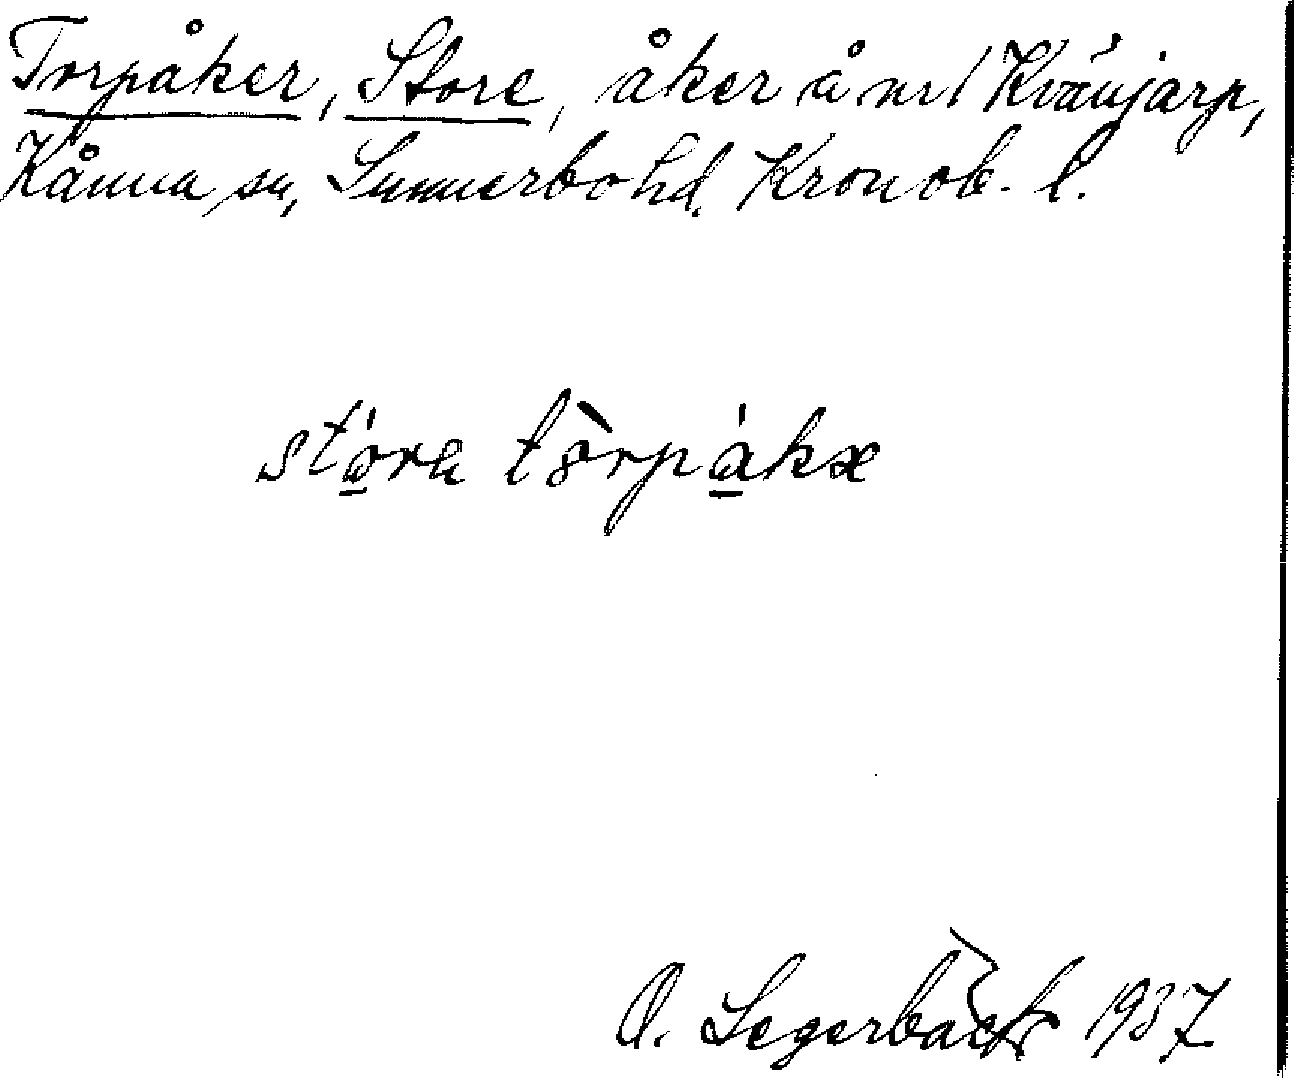 Torpåker, Store, åker å nr 1 Kvänjarp,
Kånna sn, Sunnerbo hd, Kronob. l.
stóra tòrpákæ
O. Segerbäck 1937